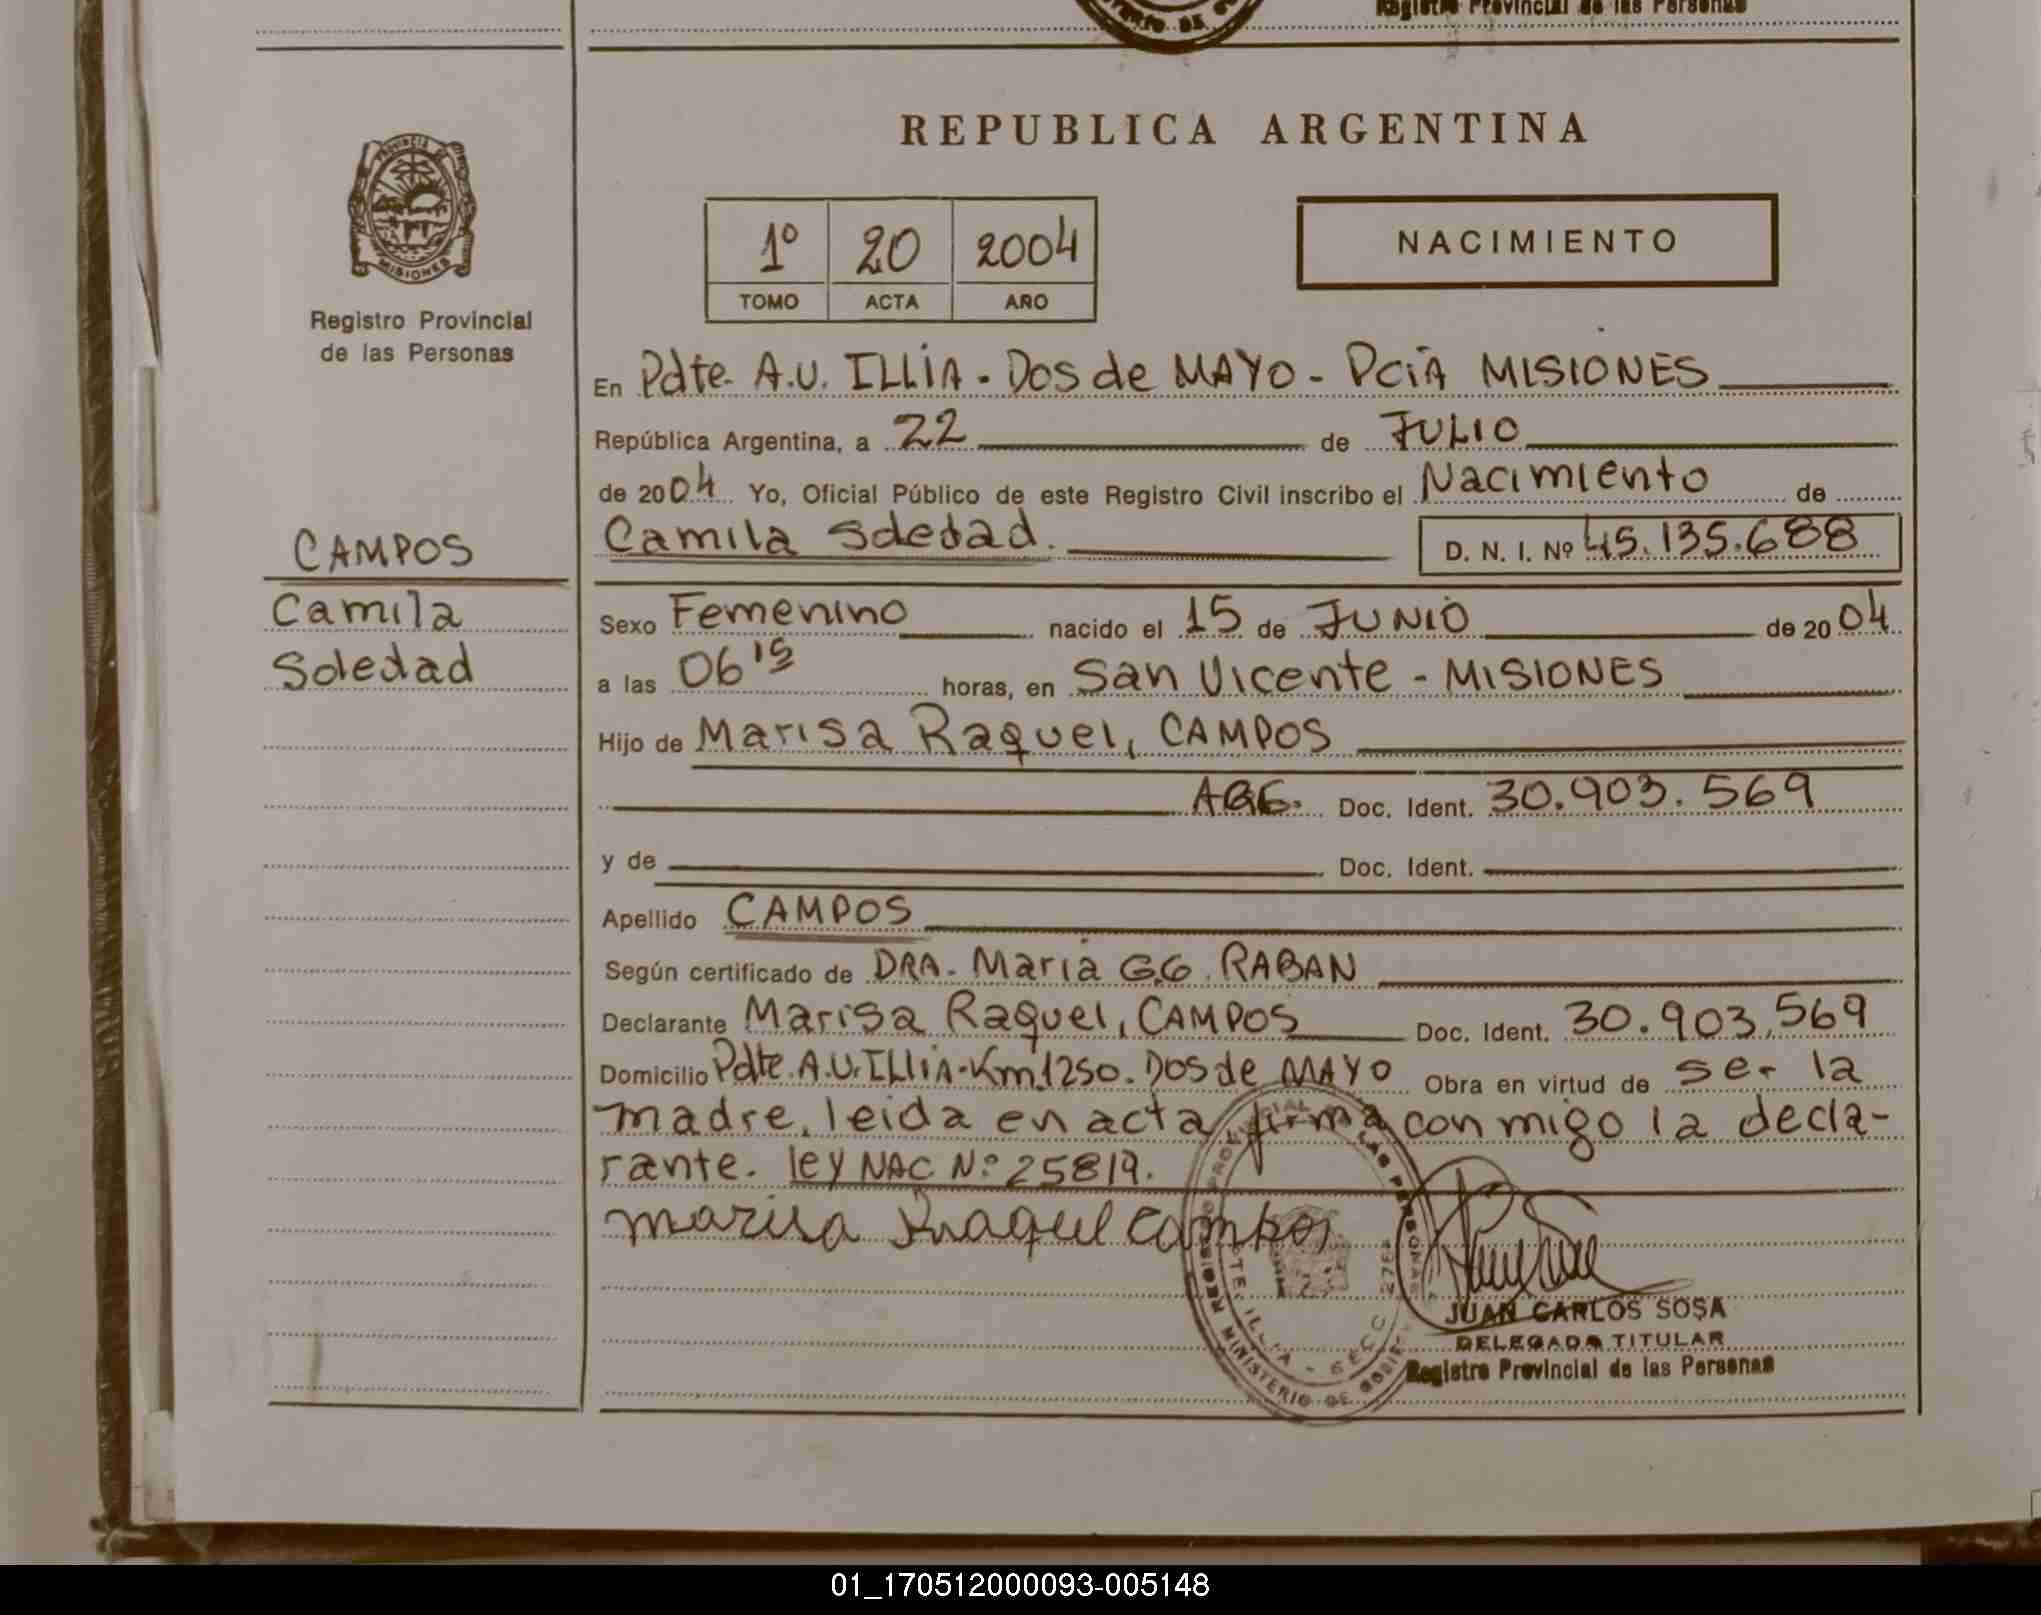 Registro Provincial de las Personas
REPUBLICA ARGENTINA
PROVINCIA DE
MISIONES
Registro Provincial
de las Personas
1º 20 2004
TOMO ACTA AÑO
NACIMIENTO
En Pdte. A.U. ILLIA - Dos de MAYO - PCIA MISIONES
República Argentina, a 22 de JULIO
de 2004 Yo, Oficial Público de este Registro Civil inscribo el Nacimiento de
Camila Soledad. D. N. I. Nº 45.135.688
CAMPOS
Camila
Soledad
Sexo Femenino nacido el 15 de JUNIO de 2004
a las 06 15 horas, en San Vicente - MISIONES
Hijo de Marisa Raquel, CAMPOS
ARG. Doc. Ident. 30.903.569
y de Doc. Ident.
Apellido CAMPOS
Según certificado de DRA. Maria G.G. RABAN
Declarante Marisa Raquel, CAMPOS Doc. Ident. 30.903.569
Domicilio Pdte. A.U. ILLIA - Km.1250. Dos de MAYO Obra en virtud de ser la
madre, leida en acta firma conmigo la decla-
rante. ley NAC Nº 25819.
Marisa Raquel Campos
JUAN CARLOS SOSA
DELEGADO TITULAR
Registro Provincial de las Personas
01_170512000093-005148